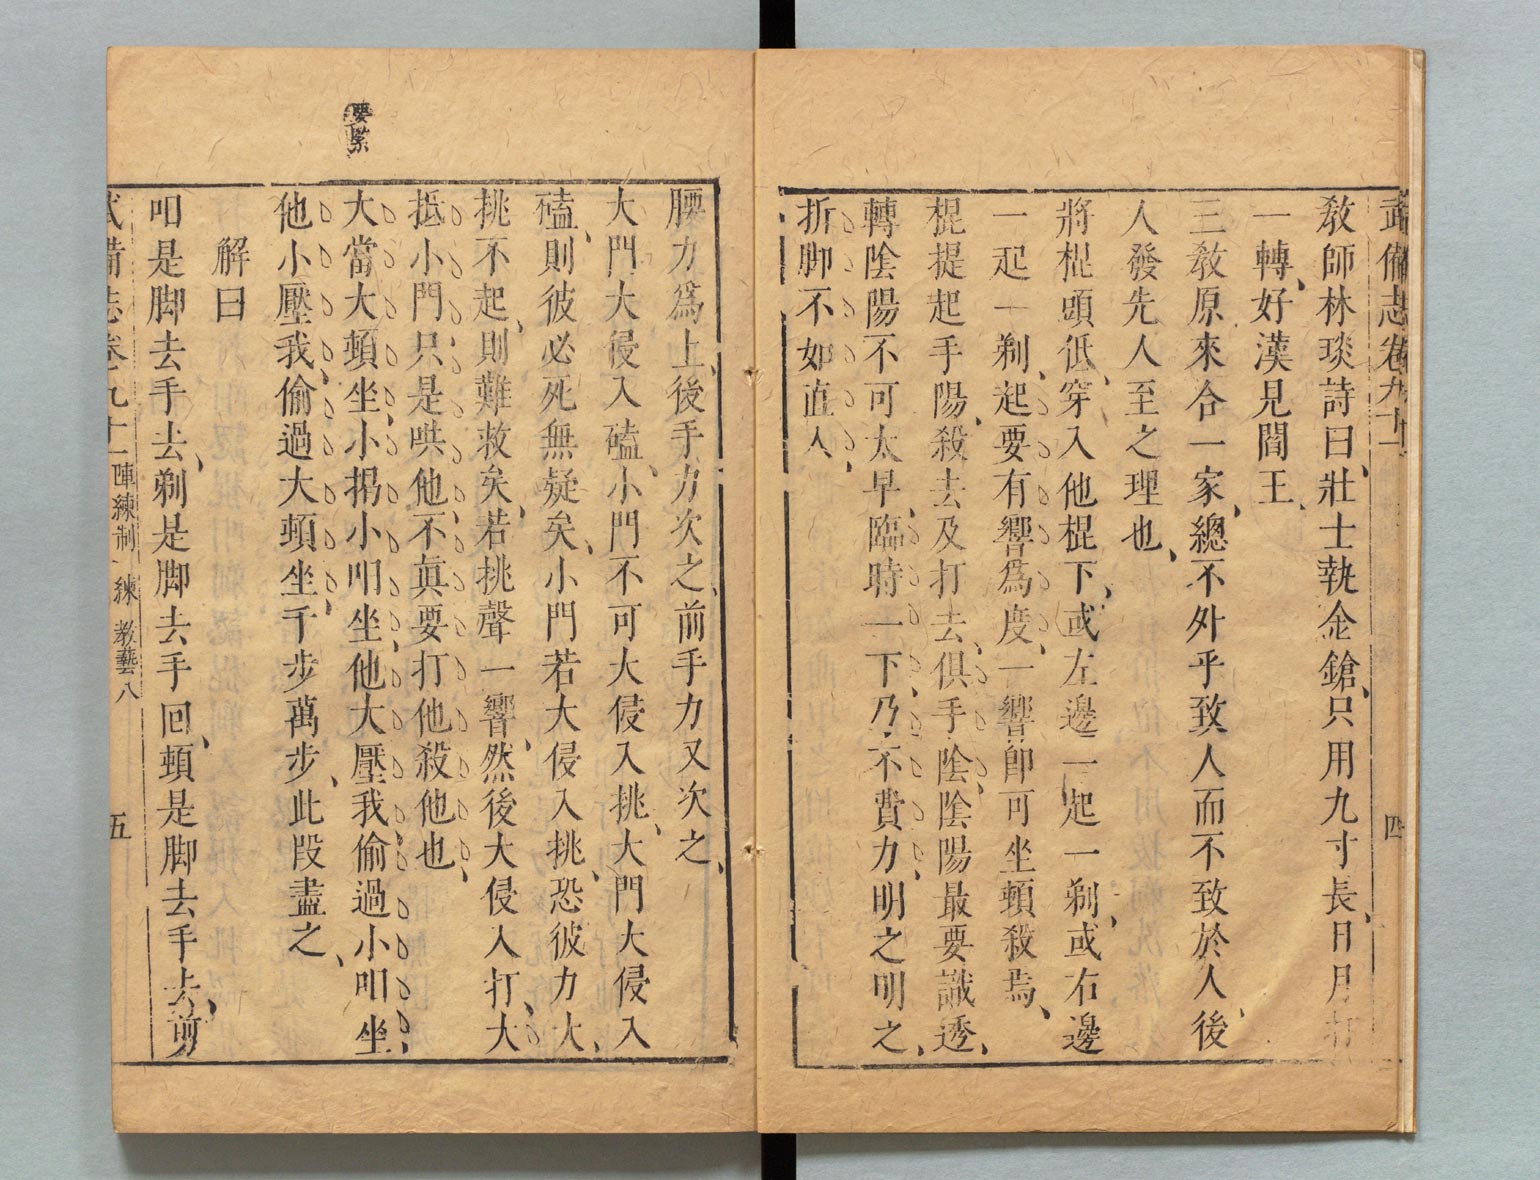 武備志卷九十一
四
教師林琰詩曰壯士執金鎗只用九寸長日月打
一轉好漢見閻王
三教原來合一家總不外乎致人而不致於人後
人發先人至之理也
將棍頭低穿入他棍下或左邊一起一剃或右邊
一起一剃起要有響爲度一響卽可坐頓殺焉
棍提起手陽殺去及打去俱手陰陰陽最要識透
轉陰陽不可太早臨時一下乃不費力明之明之
折脚不如直人
腰力爲上後手力次之前手力又次之
大門大侵入磕小門不可大侵入挑大門大侵入
磕則彼必死無疑矣小門若大侵入挑恐彼力大
挑不起則難救矣若挑聲一響然後大侵入打大
抵小門只是哄他不眞要打他殺他也
要緊
大當大頓坐小揭小叩坐他大壓我偷過小叩坐
他小壓我偷過大頓坐千步萬步此段盡之
解曰
叩是脚去手去剃是脚去手回頓是脚去手去剪
武備志卷九十一 陣練制 練 教藝八
五